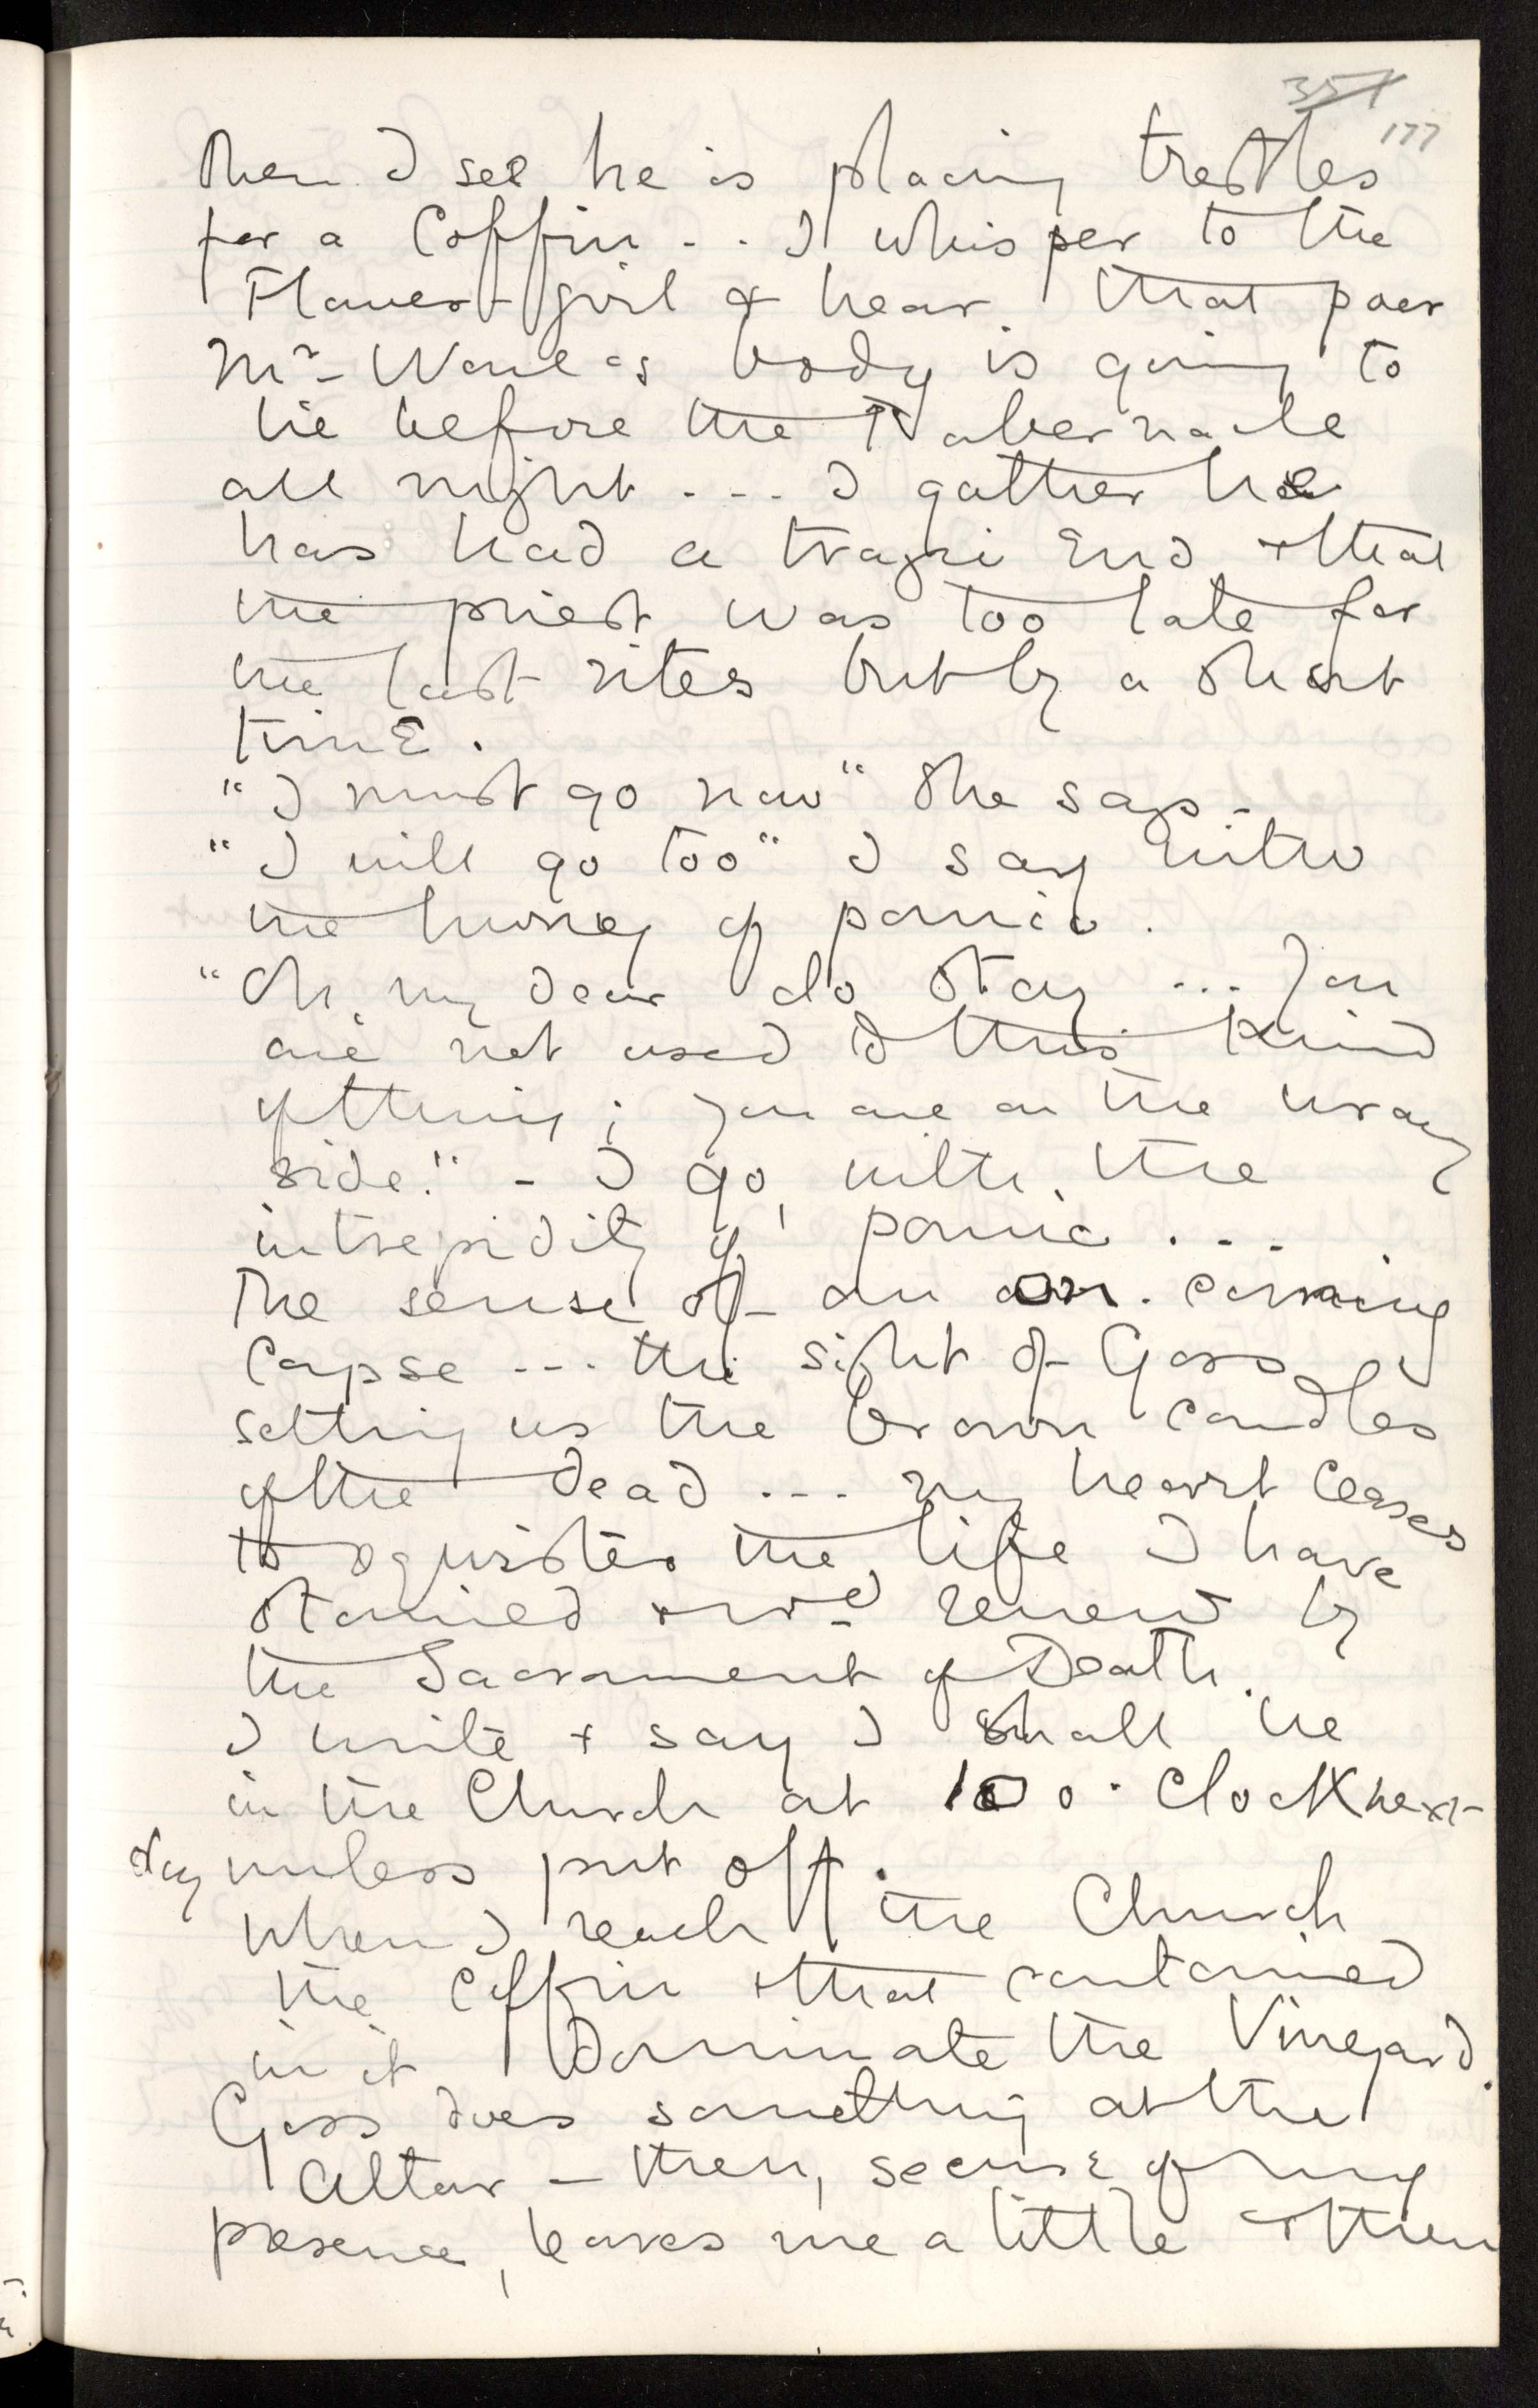 351
177
Then I see he is placing trestles
for a Coffin - - I whisper to the
Flower-girl & hear that poor
Mr- body is going to
lie before the Tabernacle
all night - - - I gather he
has had a tragic End & that
the priest was too late for
the last rites but by a short
time.
"I must go now" She says -
"I will go too" I say with
the hurry of panic.
"Oh, my dear do stay ... you
are not used to this kind
of thing; you are on the wrong
side." - I go, with the
intrepidity of panic . . .
The sense of an on-coming
corpse --- the sight of Goss
setting us the brown candles
of the dead --- my heart ceases
to register the life I have
stained & wd renew by
the Sacrament of Death.
I write & say I shall be
in the Church at 10 o'Clock next
day unless put off.
When I reach the Church
the coffin & that contained
in it Dominate the Vineyard.
Goss does something at the
Altar - then, secure of my
presence, leaves me a little & then